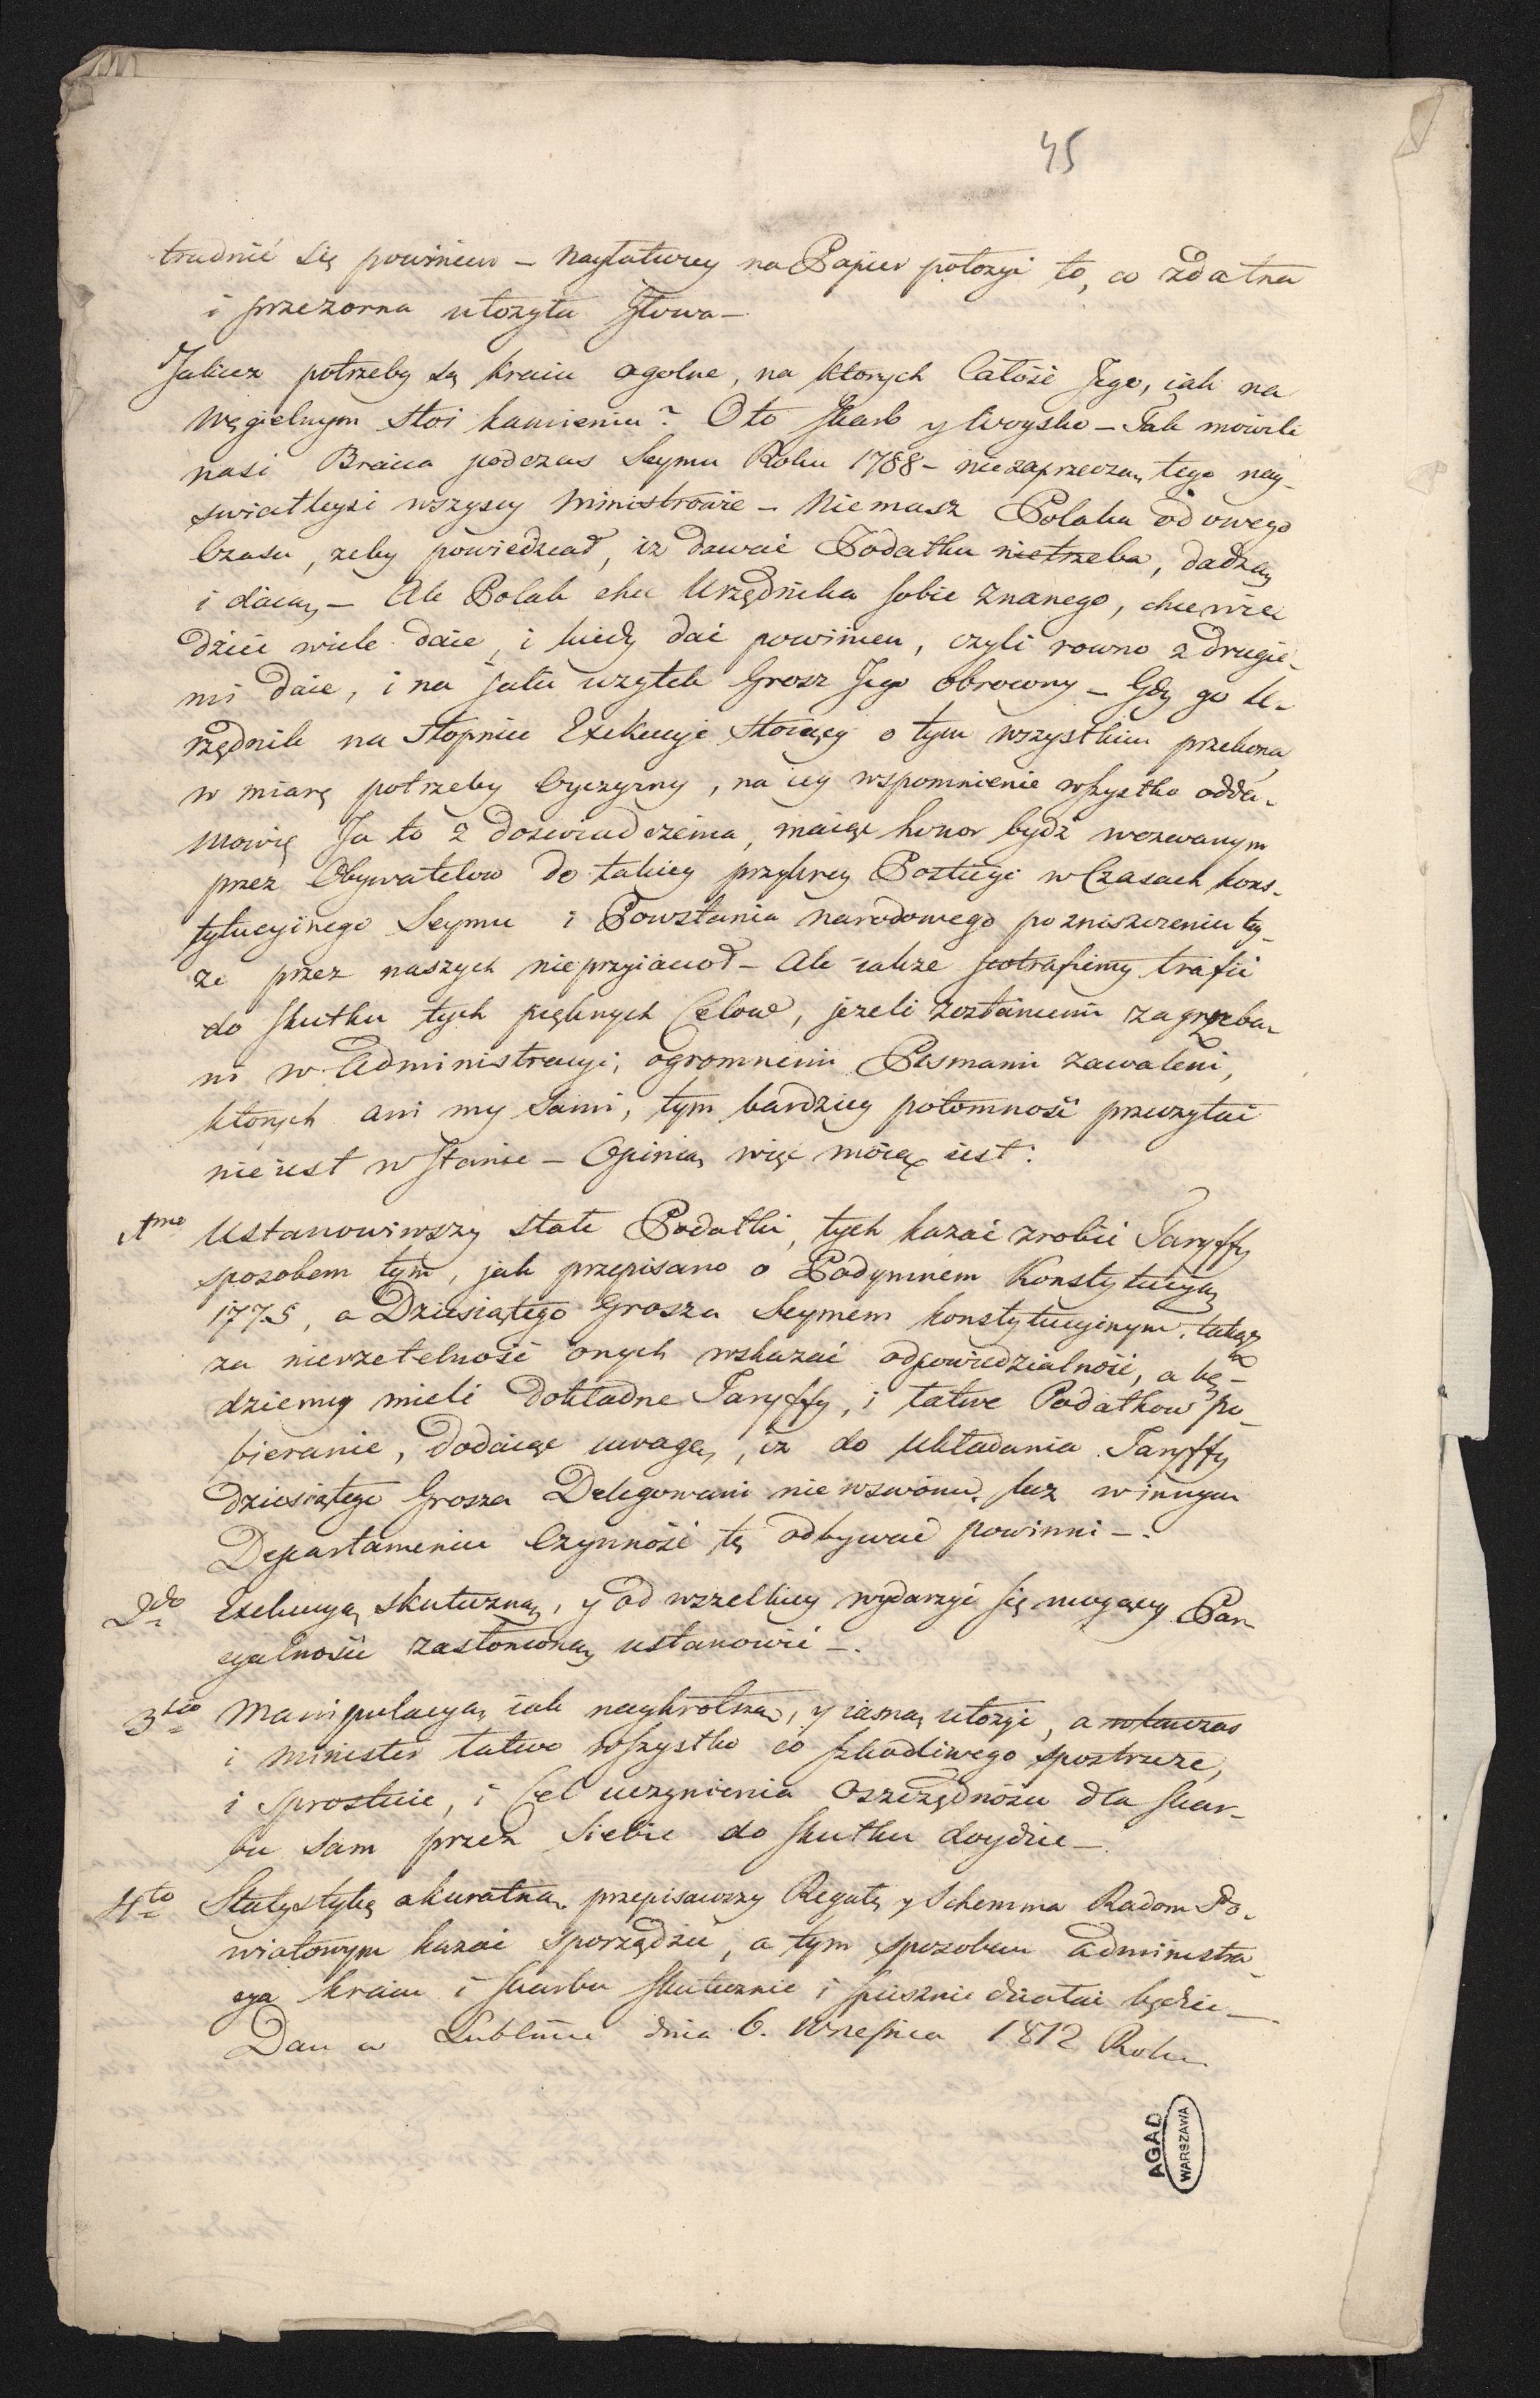 45
trudnić się powinien – naylatwiey na Papier położyć to, co zdatna
i przezorna ułożyła Głowa –
Jakież potrzeby są kraiu ogolne, na ktorych Całość Jego, iak na
Węgielnym stoi kamieniu? Oto Skarb y Woysko – Tak mowili
nasi Bracia podczas Seymu Roku 1788 – niezaprzeczą tego nay-
swiatleysi wszyscy Ministrowie – Niemasz Polaka od owego
Czasu, zeby powiedział, iz dawać Podatku nietrzeba, dadzą
i daią – Ale Polak chce Urzędnika sobie znanego, chce wie
dzieć wiele daie, i kiedy dać powinien, czyli rowno z drugie-
mi daie, i na jaki uzytek Grosz Jego obrocony – Gdy go U-
rzędnik na Stopniu Exekucyi stoiący o tym wszystkim przekona,
w miarę potrzeby Oyczyzny, na iey wspomnienie wszystko odda –
Mowię Ja to z doswiadczenia, maiąc honor bydź wezwanym
przez Obywatelow do takiey przykrey Posługi w Czasach kons-
tytucyinego Seymu i Powstania narodowego po zniszczeniu tey-
ze przez naszych nieprzyiacioł – Ale iakze potrafiemy trafić
do skutku tych pięknych Celow, jezeli zostaniemi zagrzeba-
ni w Administracyi, ogromnemi Pismami zawaleni,
ktorych ani my sami, tym bardziey potomność przeczytać
nie iest w stanie – Opinią więc moią iest:
1mo Ustanowiwszy stałe Podatki, tych kazać zrobić Taryffy
sposobem tym, jak przepisano o Podymnem Konstytucyą
1775, a Dziesiątego Grosza Seymem konstytucyinym, tęż
za nierzetelność onych wskazać odpowiedzialność, a bę-
dziemy mieli dokładne Taryffy, i łatwe Podatkow po-
bieranie, dodaiąc uwagę, iz do układania Taryffy
dziesiątego Grosza Delegowani nie w swoim, lecz w innym
Departamencie Czynność tę odbywać powinni –.
2do Exekucyą skuteczną, y od wszelkiey wydarzyć się mogącey Par
cyalności zasłonioną ustanowić –.
3tio Manipulacyą iak naykrotszą, y iasną ułozyć, a wówczas
i Minister łatwo wszystko co szkodliwego spostrzeże,
i sprostuie, i Cel uczynienia oszczędności dla Skar-
bu sam przez siebie do skutku doydzie –
4to Statystykę akuratną przepisawszy Regułę y Schemma Radom Po-
wiatowym kazać sporządzić, a tym sposobem administra-
cya kraiu i Skarbu skutecznie i spiesznie działać będzie –
Dan w Lublinie dnia 6. Wrzesnia 1812 Roku
AGAD
WARSZAWA